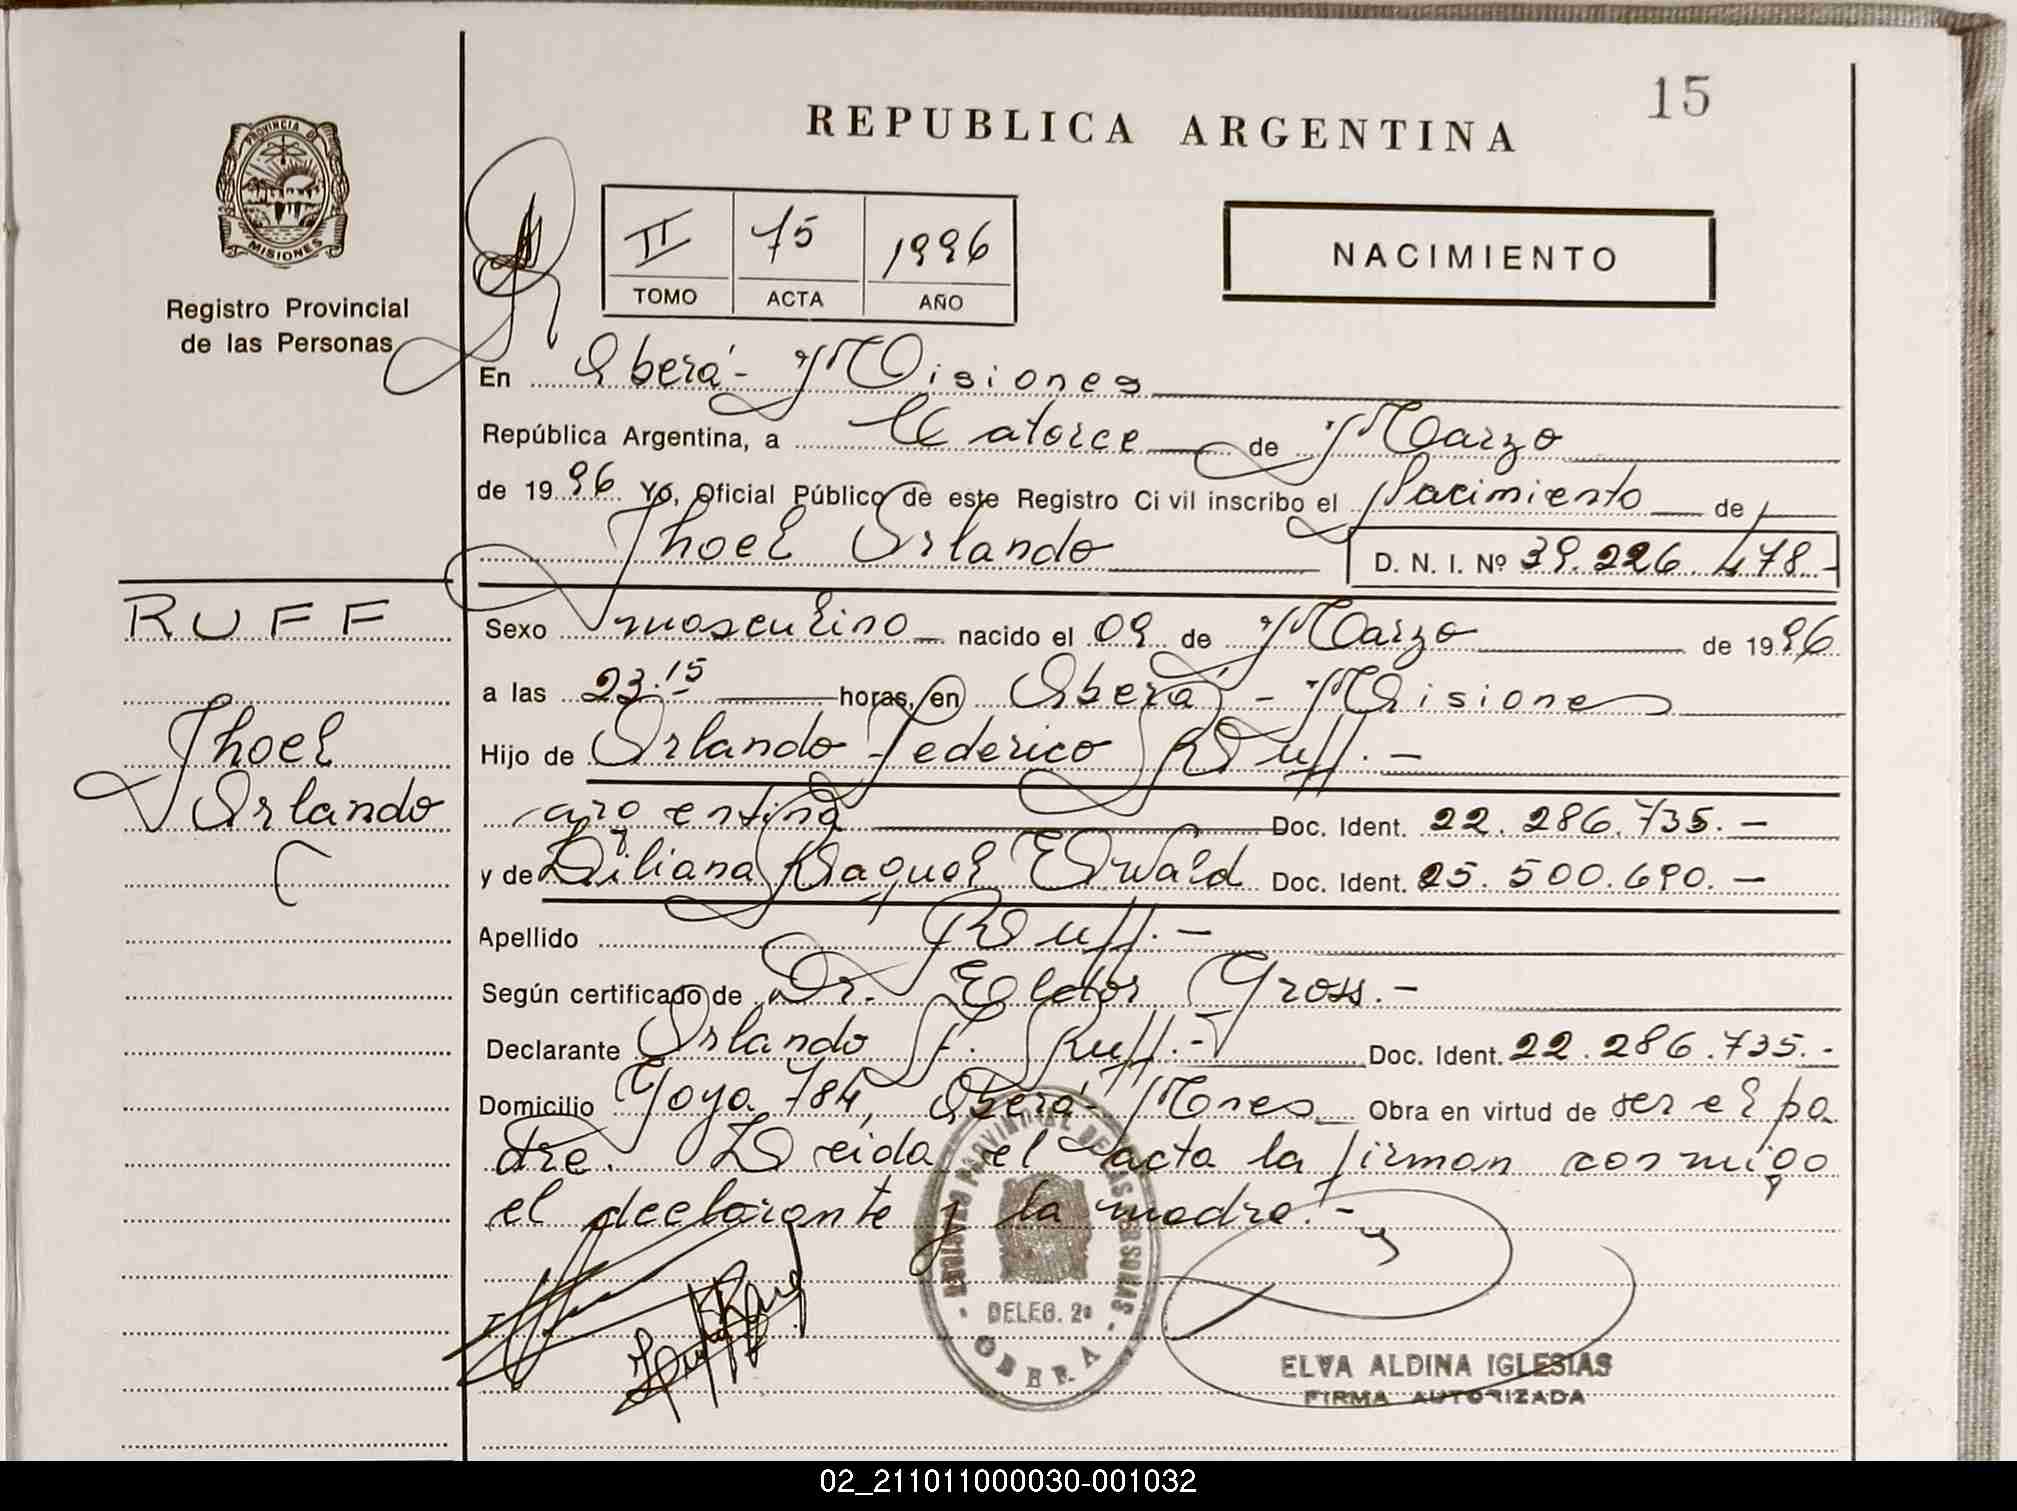 15
REPUBLICA ARGENTINA
PROVINCIA DE
MISIONES
Registro Provincial
de las Personas
II 15 1996
TOMO ACTA AÑO
NACIMIENTO
En Oberá - Misiones
República Argentina, a Catorce de Marzo
de 1996 Yo, Oficial Público de este Registro Civil inscribo el Nacimiento de
Jhoel Orlando D. N. I. Nº 39.226.478.-
RUFF
Jhoel
Orlando
Sexo masculino nacido el 09 de Marzo de 1996
a las 23.15 horas, en Oberá - Misiones
Hijo de Orlando Federico Ruff.-
argentina Doc. Ident. 22.286.735.-
y de Liliana Raquel Ewald Doc. Ident. 25.500.690.-
Apellido Ruff.-
Según certificado de Dr. Eldor Gross.-
Declarante Orlando F. Ruff.- Doc. Ident. 22.286.735.-
Domicilio Goya 784, Oberá Mnes Obra en virtud de ser el pa
dre. Leida el acta la firman conmigo
el declarante y la madre.-
REGISTRO PROVINCIAL DE LAS PERSONAS
DELEG. 2a
OBERA
ELVA ALDINA IGLESIAS
FIRMA AUTORIZADA
02_211011000030-001032